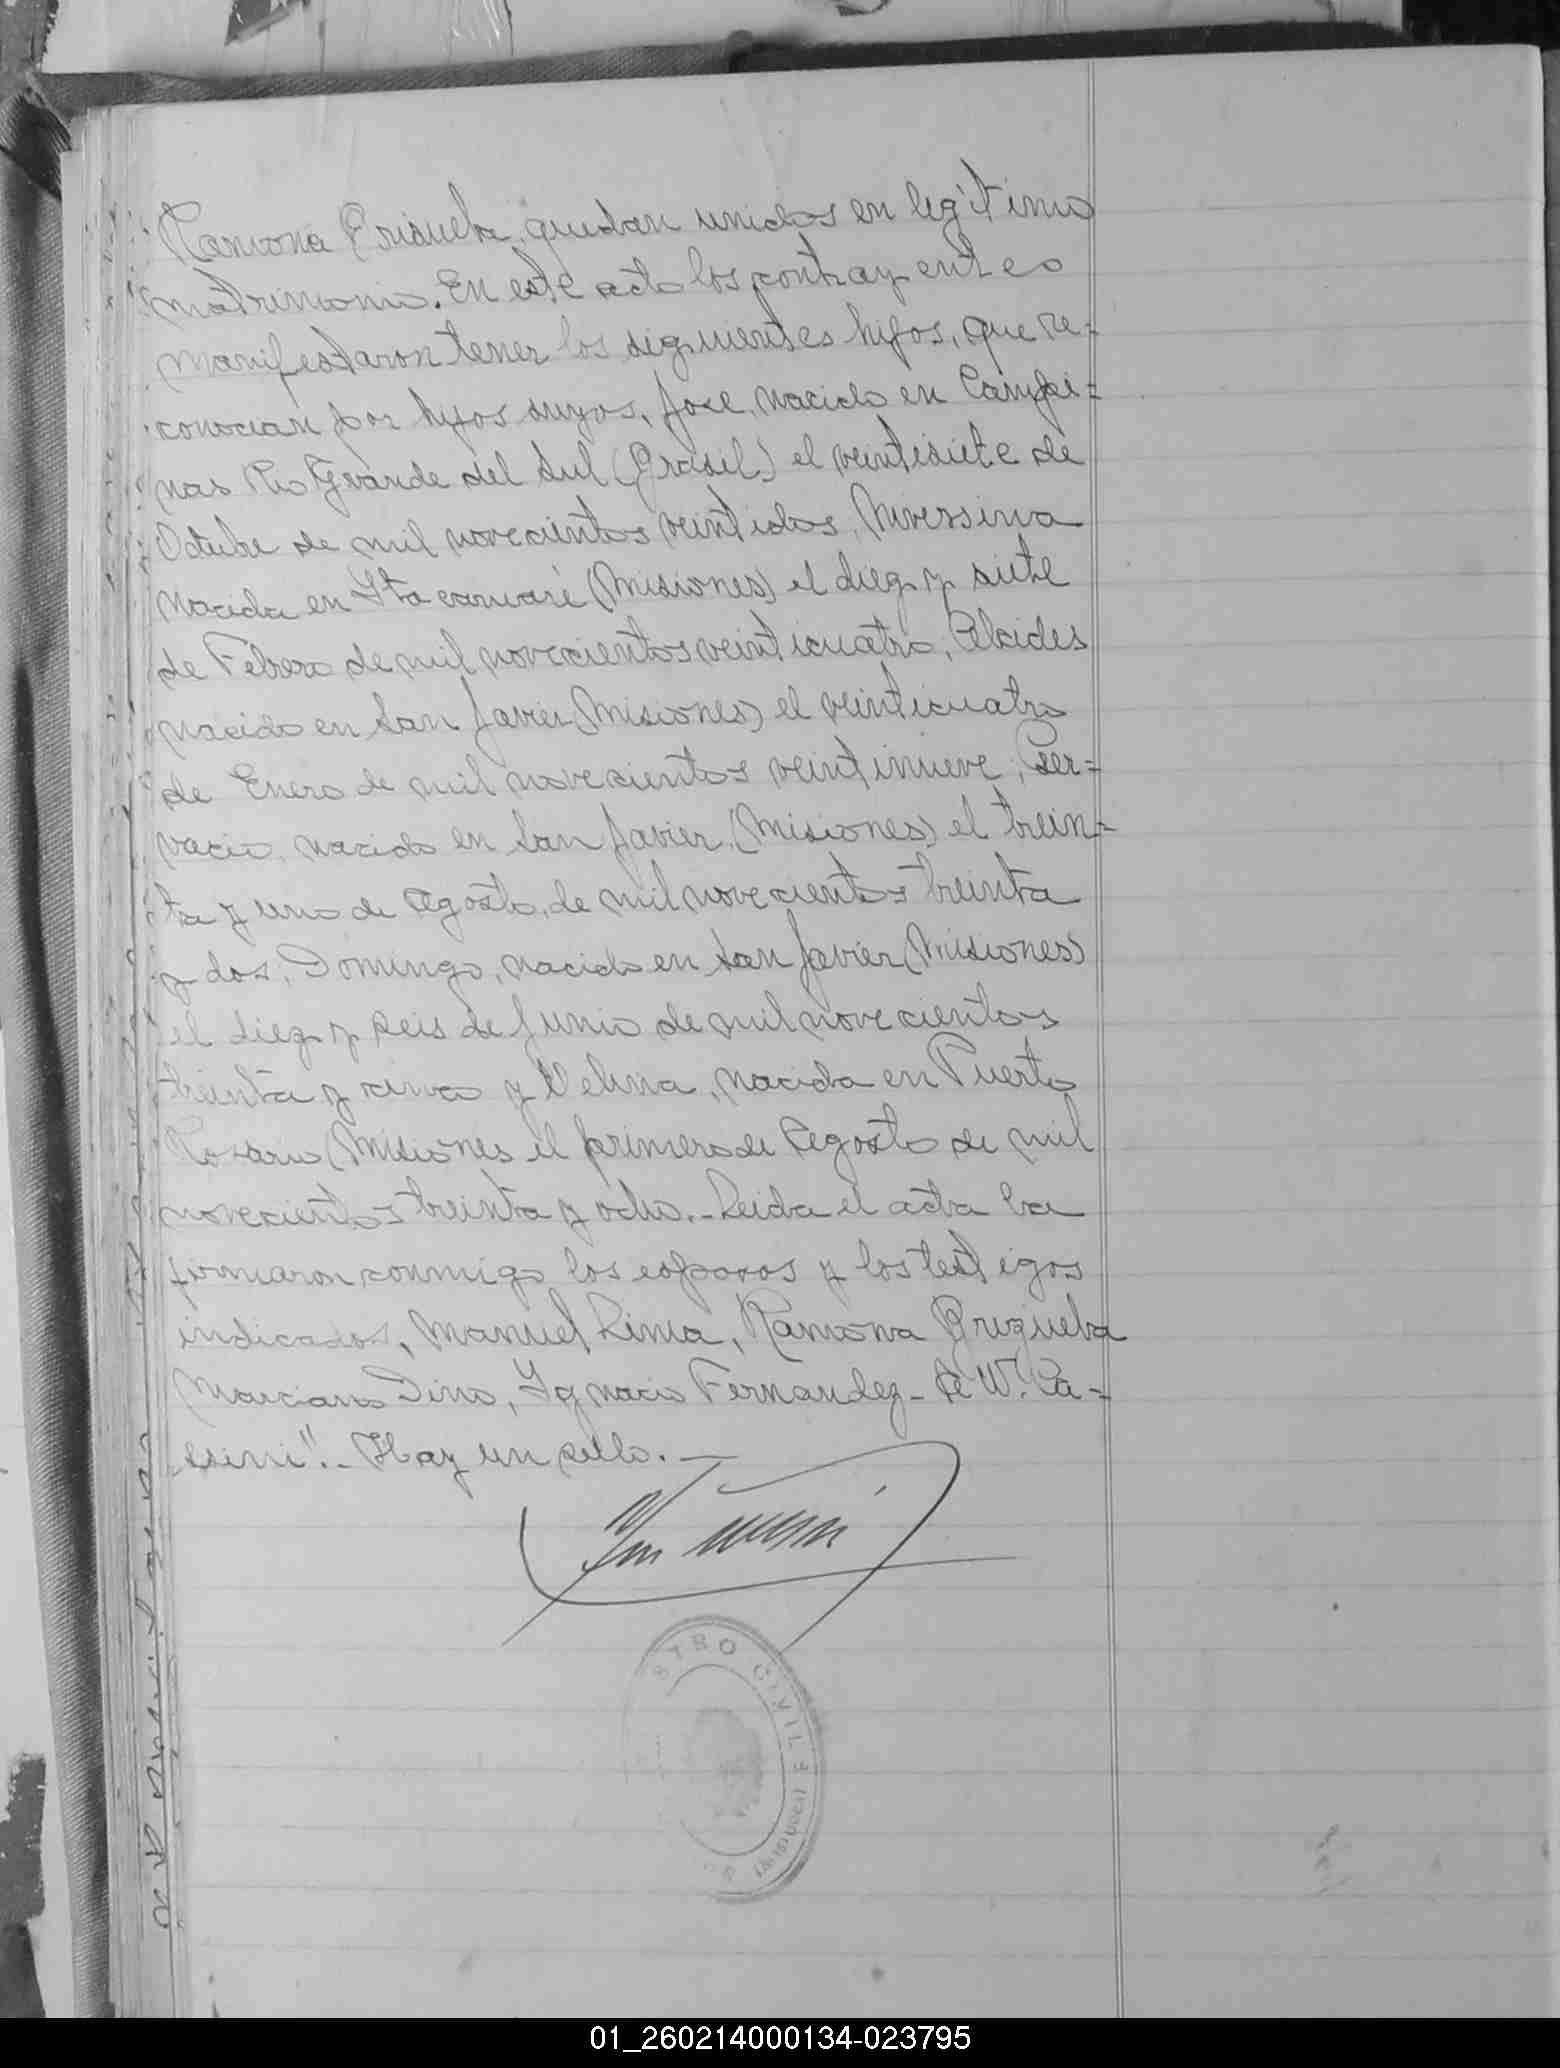 Ramona Brisuela, quedan unidos en legítimo
matrimonio. En este acto los contrayentes
manifestaron tener los siguientes hijos, que re=
conocian por hijos suyos, José, nacido en Campi=
nas Rio Grande del Sul (Brasil) el veintisiete de
Octubre de mil novecientos veintidos, Niversina
nacida en Ita caruaré (Misiones) el diez y siete
de Febrero de mil novecientos veinticuatro, Alcides
nacido en San Javier (Misiones) el veinticuatro
de Enero de mil novecientos veintinueve; Ser=
vacio, nacido en San Javier, (Misiones) el trein=
ta y uno de Agosto, de mil novecientos treinta
y dos; Domingo, nacido en San Javier (Misiones)
el diez y seis de Junio de mil novecientos
treinta y cinco y Velina, nacida en Puerto
Rosario (Misiones el primero de Agosto de mil
novecientos treinta y ocho.- Leida el acta la
firmaron conmigo los esposos y los testigos
indicados, Manuel Lima, Ramona Brizuela
Marciano Dino, Ygnacio Fernandez - W. Ca=
ssini".- Hay un sello.-
STRO CIVIL
01_260214000134-023795